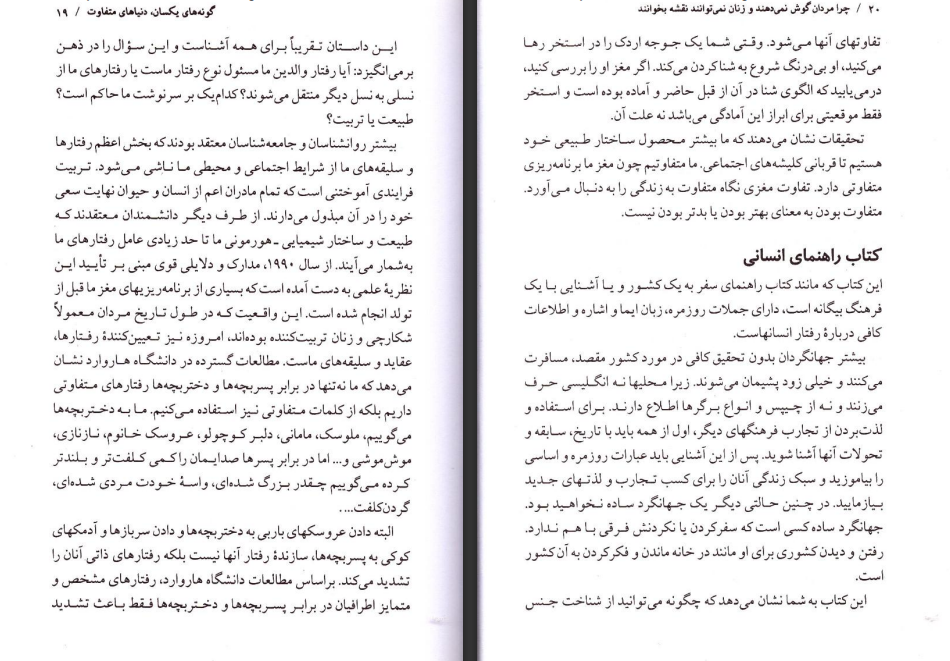 گونه‌های یکسان، دنیاهای متفاوت / ۱۹
این داستان تقریباً برای همه آشناست و این سؤال را در ذهن
برمی‌انگیزد: آیا رفتار والدین ما مسئول نوع رفتار ماست یا رفتارهای ما از
نسلی به نسل دیگر منتقل می‌شوند؟ کدام‌یک بر سرنوشت ما حاکم است؟
طبیعت یا تربیت؟
بیشتر روانشناسان و جامعه‌شناسان معتقد بودند که بخش اعظم رفتارها
و سلیقه‌های ما از شرایط اجتماعی و محیطی ما ناشی می‌شود. تربیت
فرایندی آموختنی است که تمام مادران اعم از انسان و حیوان نهایت سعی
خود را در آن مبذول می‌دارند. از طرف دیگر دانشمندان معتقدند که
طبیعت و ساختار شیمیایی ـ هورمونی ما تا حد زیادی عامل رفتارهای ما
به‌شمار می‌آیند. از سال ۱۹۹۰، مدارک و دلایلی قوی مبنی بر تأیید این
نظریهٔ علمی به دست آمده است که بسیاری از برنامه‌ریزیهای مغز ما قبل از
تولد انجام شده است. این واقعیت که در طول تاریخ مردان معمولاً
شکارچی و زنان تربیت‌کننده بوده‌اند، امروزه نیز تعیین‌کنندهٔ رفتارها،
عقاید و سلیقه‌های ماست. مطالعات گسترده در دانشگاه هاروارد نشان
می‌دهد که ما نه‌تنها در برابر پسربچه‌ها و دختربچه‌ها رفتارهای متفاوتی
داریم بلکه از کلمات متفاوتی نیز استفاده می‌کنیم. ما به دختربچه‌ها
می‌گوییم، ملوسک، مامانی، دلبر کوچولو، عروسک خانوم، نازنازی،
موش‌موشی و... اما در برابر پسرها صدایمان را کمی کلفت‌تر و بلندتر
کرده می‌گوییم چقدر بزرگ شده‌ای، واسهٔ خودت مردی شده‌ای،
گردن‌کلفت....
البته دادن عروسکهای باربی به دختربچه‌ها و دادن سربازها و آدمکهای
کوکی به پسربچه‌ها، سازندهٔ رفتار آنها نیست بلکه رفتارهای ذاتی آنان را
تشدید می‌کند. براساس مطالعات دانشگاه هاروارد، رفتارهای مشخص و
متمایز اطرافیان در برابر پسربچه‌ها و دختربچه‌ها فقط باعث تشدید
۲۰ / چرا مردان گوش نمی‌دهند و زنان نمی‌توانند نقشه بخوانند
تفاوتهای آنها می‌شود. وقتی شما یک جوجه اردک را در استخر رها
می‌کنید، او بی‌درنگ شروع به شناکردن می‌کند. اگر مغز او را بررسی کنید،
درمی‌یابید که الگوی شنا در آن از قبل حاضر و آماده بوده است و استخر
فقط موقعیتی برای ابراز این آمادگی می‌باشد نه علت آن.
تحقیقات نشان می‌دهند که ما بیشتر محصول ساختار طبیعی خود
هستیم تا قربانی کلیشه‌های اجتماعی. ما متفاوتیم چون مغز ما برنامه‌ریزی
متفاوتی دارد. تفاوت مغزی نگاه متفاوت به زندگی را به دنبال می‌آورد.
متفاوت بودن به معنای بهتر بودن یا بدتر بودن نیست.
کتاب راهنمای انسانی
این کتاب که مانند کتاب راهنمای سفر به یک کشور و یا آشنایی با یک
فرهنگ بیگانه است، دارای جملات روزمره، زبان ایما و اشاره و اطلاعات
کافی دربارهٔ رفتار انسانهاست.
بیشتر جهانگردان بدون تحقیق کافی در مورد کشور مقصد، مسافرت
می‌کنند و خیلی زود پشیمان می‌شوند. زیرا محلیها نه انگلیسی حرف
می‌زنند و نه از چیپس و انواع برگرها اطلاع دارند. برای استفاده و
لذت‌بردن از تجارب فرهنگهای دیگر، اول از همه باید با تاریخ، سابقه و
تحولات آنها آشنا شوید. پس از این آشنایی باید عبارات روزمره و اساسی
را بیاموزید و سبک زندگی آنان را برای کسب تجارب و لذتهای جدید
بیازمایید. در چنین حالتی دیگر یک جهانگرد ساده نخواهید بود.
جهانگرد ساده کسی است که سفرکردن یا نکردنش فرقی با هم ندارد.
رفتن و دیدن کشوری برای او مانند در خانه ماندن و فکرکردن به آن کشور
است.
این کتاب به شما نشان می‌دهد که چگونه می‌توانید از شناخت جنس